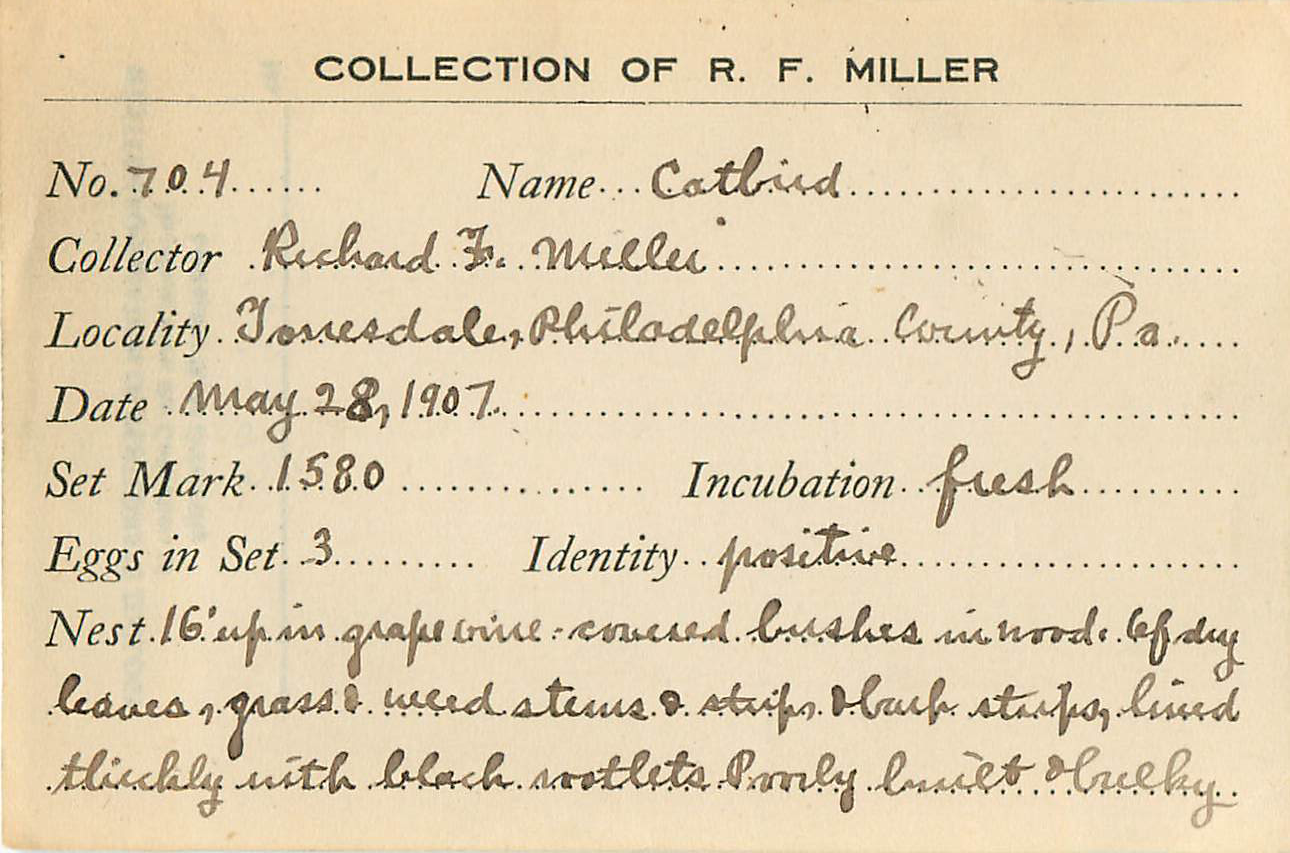 COLLECTION OF R. F. MILLER
No. 704 Name Catbird
Collector Richard F. Miller
Locality Torresdale, Philadelphia County, Pa.
Date May 28, 1907.
Set Mark 1580 Incubation fresh
Eggs in Set 3 Identity positive
Nest 16' up in grapevine-covered bushes in wood: Of dry
leaves, grass & weed stems & strips & bark strips, lined
thickly with black rootlets Poorly built & bulky